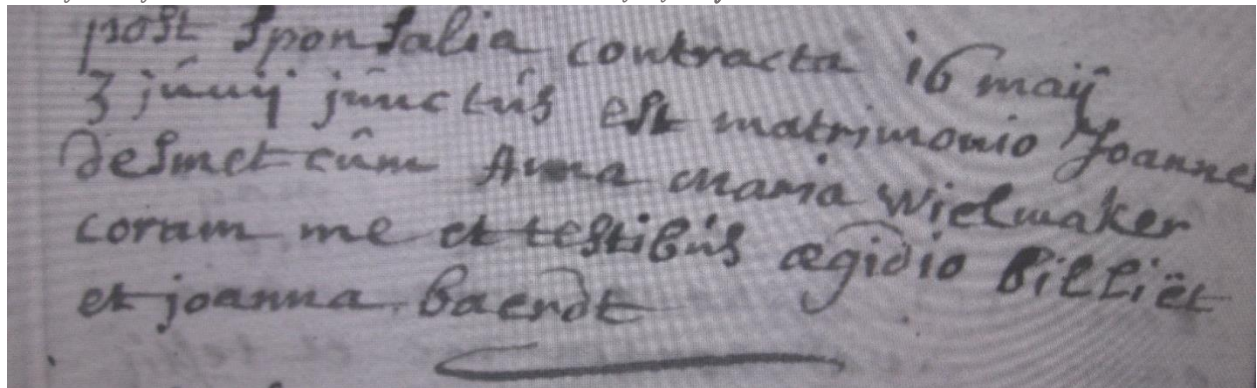 post sponsalia contracta 16 maij
3 junij junctus est matrimonio Joannes
desmet cum Anna Maria Wielmaker
coram me et testibus ægidio billiët
et joanna baerdt